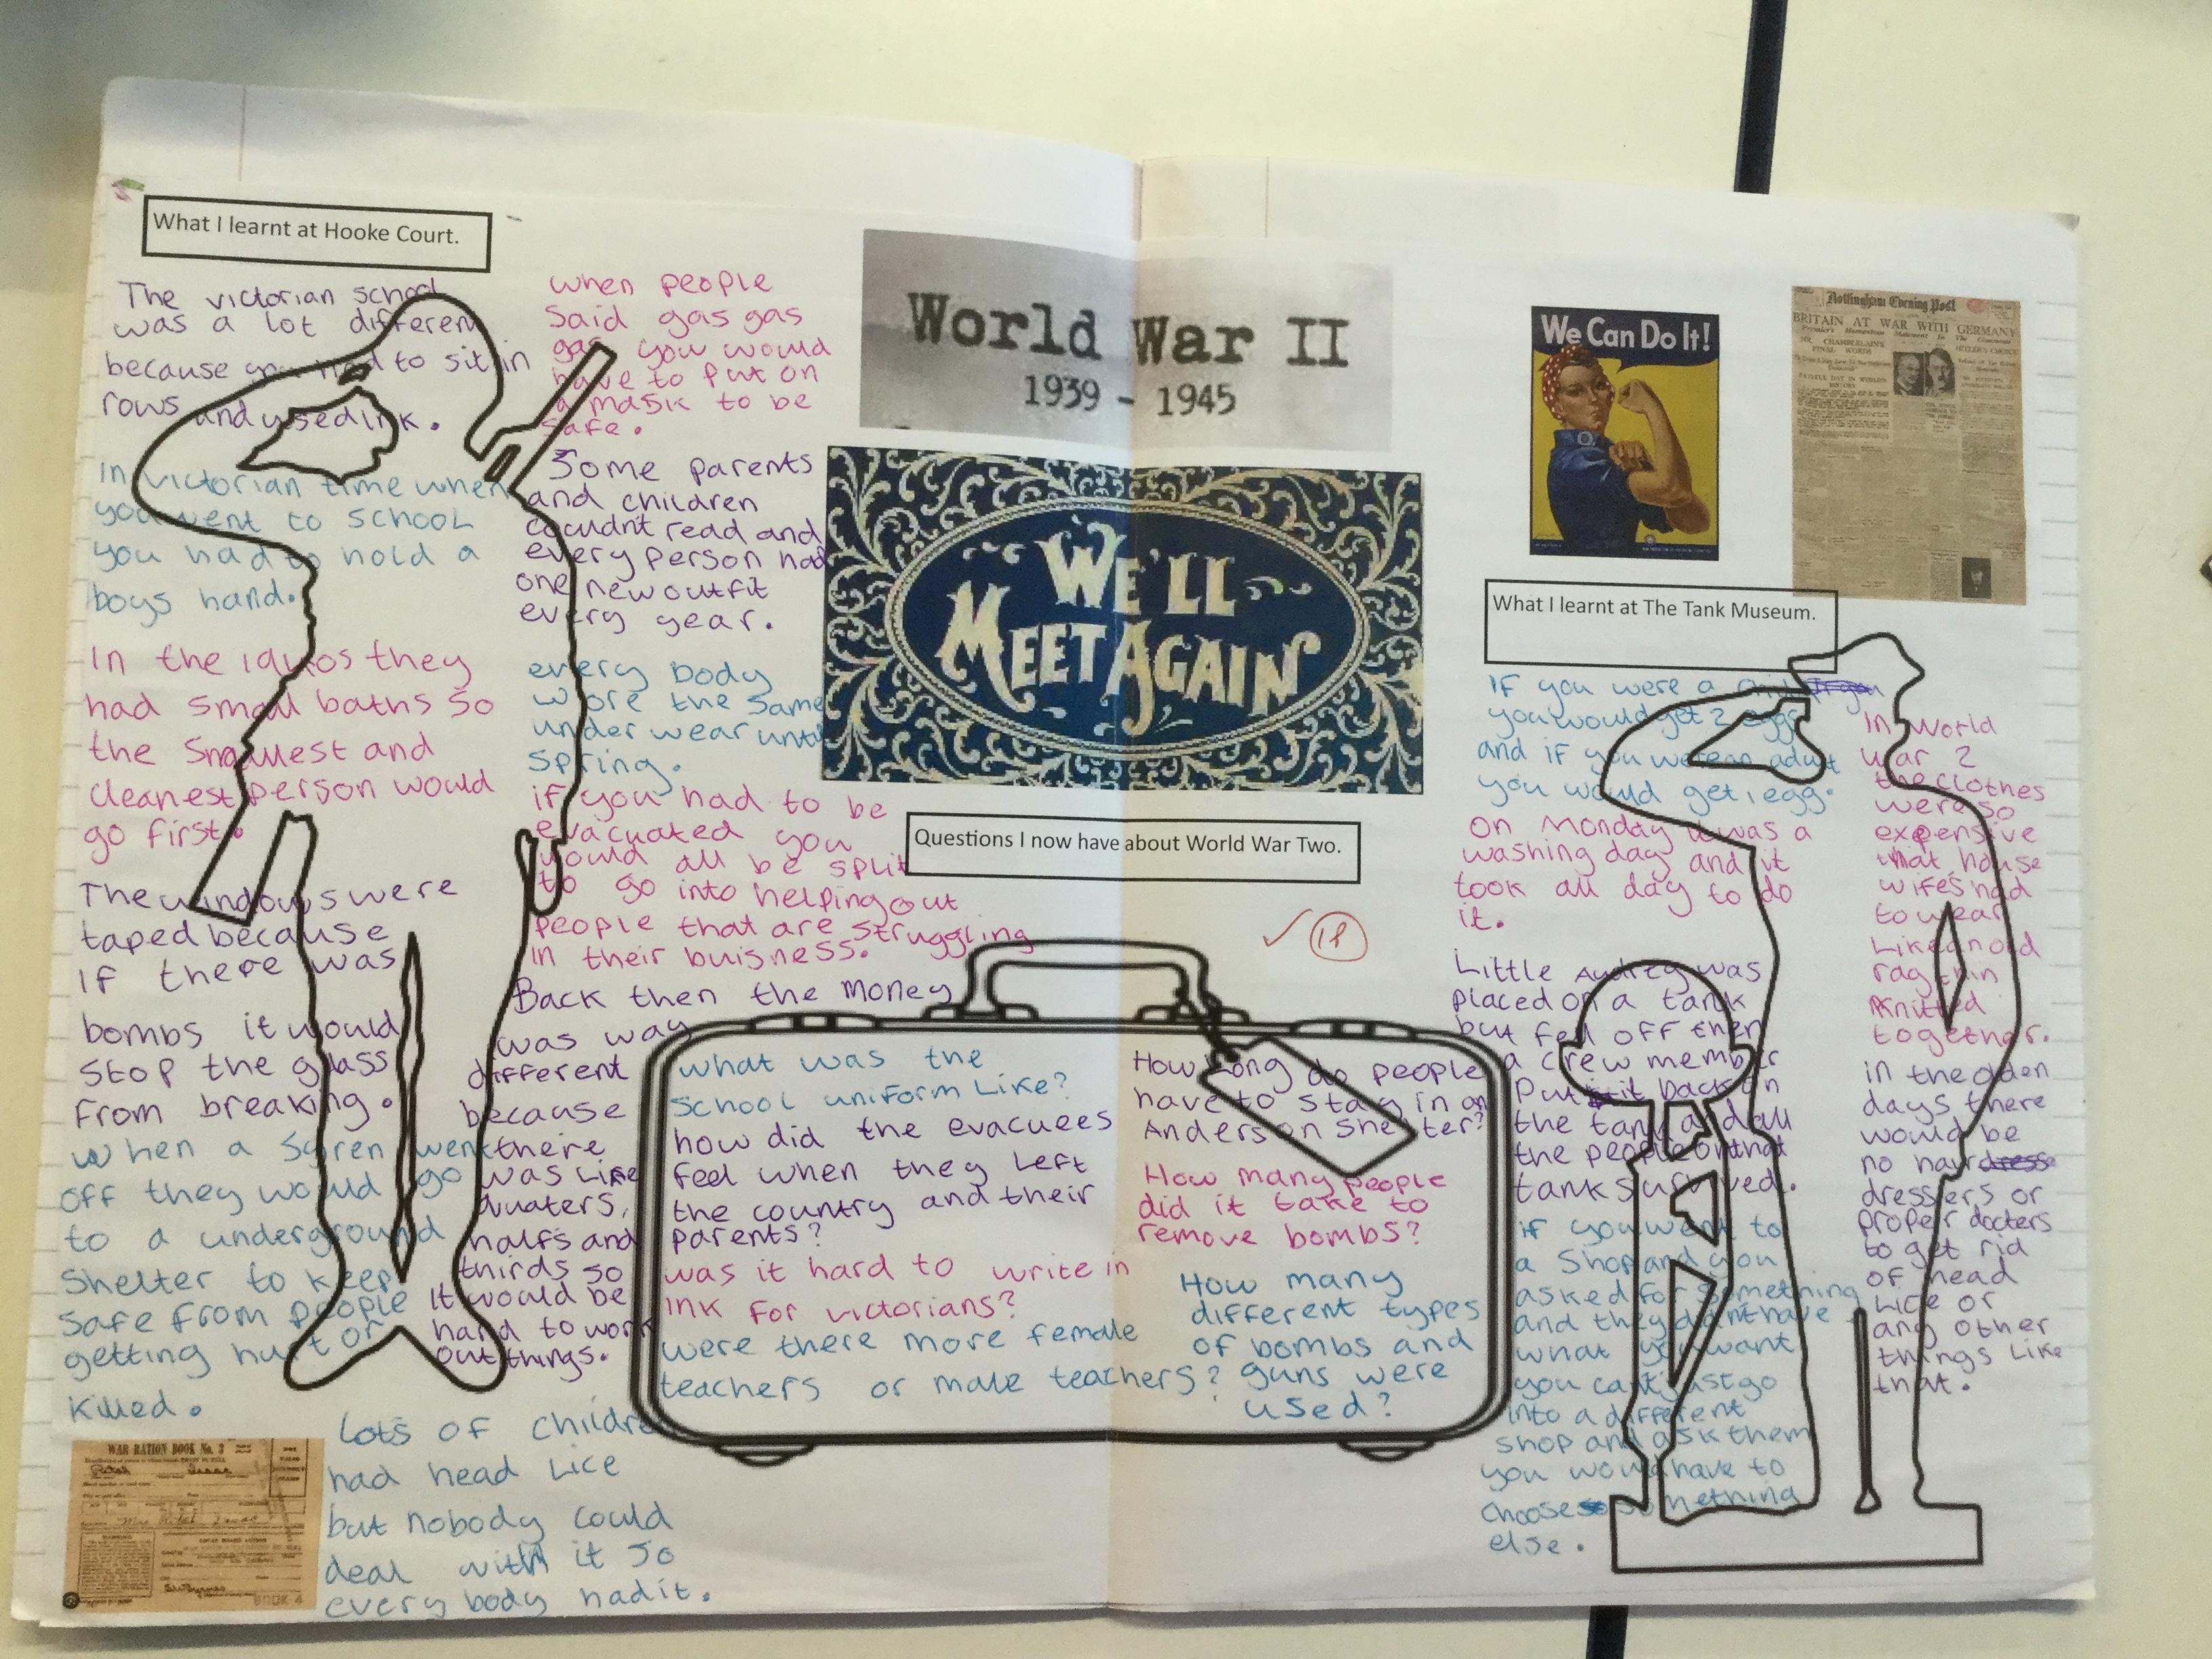 What I learnt at Hooke Court.
The victorian school
was a lot different
because you had to sit in
rows and used ink.
In victorian time when
you went to school
you had to hold a
boys hand.
In the 1940s they
had small baths so
the smallest and
cleanest person would
go first.
The windows were
taped because
if there was
bombs it would
stop the glass
from breaking.
When a Syren went
off they would go
to a underground
shelter to keep
safe from people
getting hurt or
killed.
when people
said gas gas
gas you would
have to put on
a mask to be
safe.
Some parents
and children
couldnt read and
every person had
one new outfit
every year.
every body
wore the same
under wear until
spring.
if you had to be
evacuated you
would all be split
to go into helping out
people that are struggling
in their buisness.
Back then the money
was way
different
because
there
was like
quaters,
halfs and
thirds so
it would be
hard to work
out things.
Lots of children
had head lice
but nobody could
deal with it so
every body had it.
WAR RATION BOOK No. 3
BOOK 4
World War II
1939 - 1945
WE'LL
MEET AGAIN
Questions I now have about World War Two.
what was the
school uniform like?
how did the evacuees
feel when they left
the country and their
parents?
was it hard to write in
ink for victorians?
were there more female
teachers or male teachers?
How long do people
have to stay in an
Anderson shelter?
How many people
did it take to
remove bombs?
How many
different types
of bombs and
guns were
used?
We Can Do It!
Nottingham Evening Post
BRITAIN AT WAR WITH GERMANY
MR. CHAMBERLAIN'S
FINAL WORDS
What I learnt at The Tank Museum.
If you were a child
you would get 2 eggs
and if you were an adult
you would get 1 egg.
On Monday it was a
washing day and it
took all day to do
it.
Little Audrey was
placed on a tank
but fell off then
a crew member
Put it back on
the tank and all
the people on that
tank survived.
if you went to
a shop and you
asked for something
and they didnt have
what you want
you cant just go
into a different
shop and ask them
you would have to
choose something
else.
In World
war 2
the clothes
were so
expensive
that house
wifes had
to wear
like an old
rag thin
knitted
together.
in the olden
days there
would be
no hair
dressers or
proper docters
to get rid
of head
lice or
any other
things like
that.